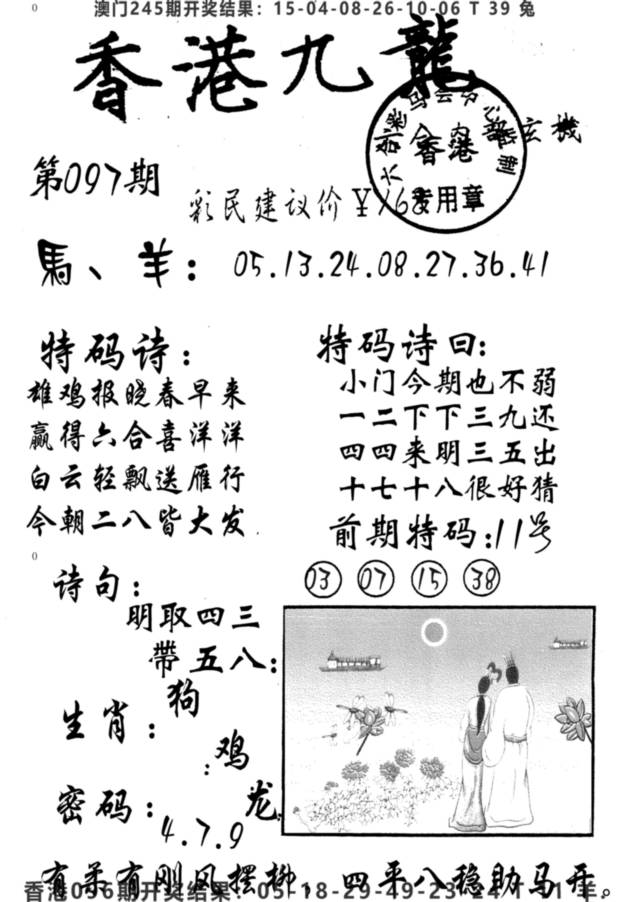 澳门245期开奖结果：15-04-08-26-10-06 T 39 兔
香港九龍
玄機
香港
专用章
第097期
彩民建议价￥
馬、羊：05.13.24.08.27.36.41
特码诗：
雄鸡报晓春早来
赢得六合喜洋洋
白云轻飘送雁行
今朝二八皆大发
特码诗曰：
小门今期也不弱
一二下下三九还
四四来明三五出
十七十八很好猜
前期特码：11号
03 07 15 38
诗句：
明取四三
帶五八：
生肖：狗
：鸡
龙
密码：4.7.9
有柔有刚风摆柳，四平八稳助马开。
香港096期开奖结果：05-18-29-49-23